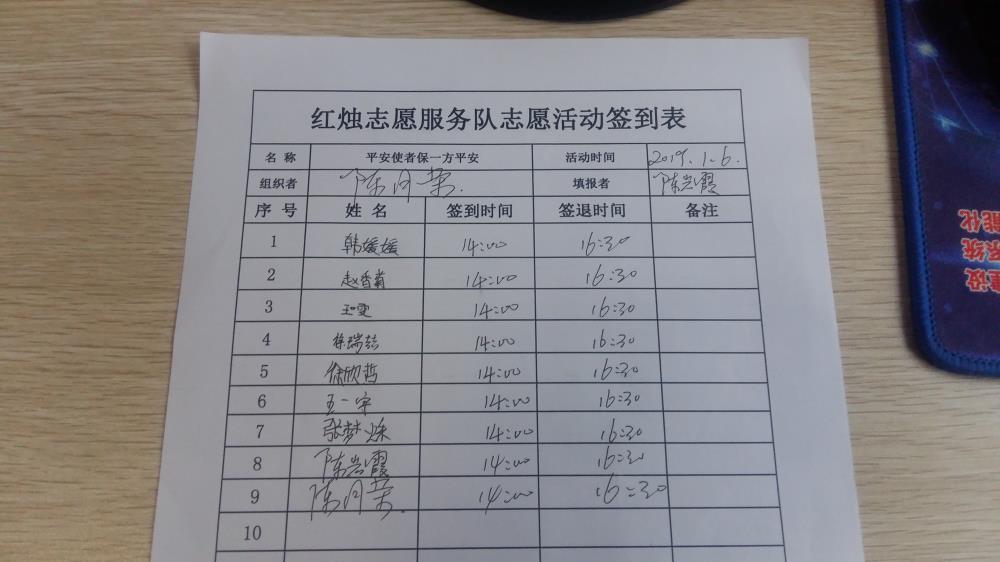 红烛志愿服务队志愿活动签到表
名 称 平安使者保一方平安 活动时间 2019.1.6.
组织者 陈月荣. 填报者 陈岩霞
序 号 姓 名 签到时间 签退时间 备注
1 韩媛媛 14:00 16:30
2 赵香菊 14:00 16:30
3 王雯 14:00 16:30
4 徐瑞喆 14:00 16:30
5 徐欣哲 14:00 16:30
6 王一宇 14:00 16:30
7 张梦烁 14:00 16:30
8 陈岩霞 14:00 16:30
9 陈月荣. 14:00 16:30
10
能化
系统
建设